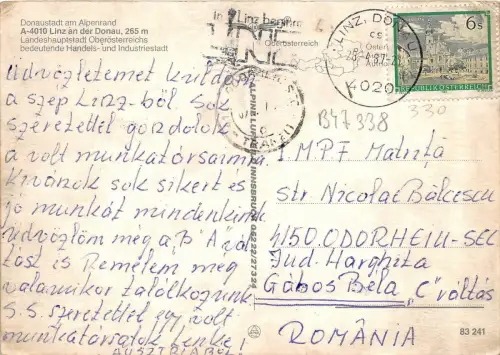 Donaustadt am Alpenrand
A-4010 Linz an der Donau, 265 m
Landeshauptstadt Oberösterreichs
bedeutende Handels- und Industriestadt
in Linz
Oberösterreich
LINZ, DONAU
4020
6s
REPUBLIK ÖSTERREICH
Üdvözletemet küldöm
a szép Linz-ből. Sok
szeretettel gondolok
a volt munkatársaimra
Kivánok sok sikert és
jó munkát mindenkinek
üdvözlöm még a "B" "A" vál
tást is Remélem még
valamikor találkozunk
S.S. szeretettel egy volt
munkatársatok
AUSZTRIÁBÓL!
ALPINE LUFTBILD INNSBRUCK
B47338
320
I MPF Matrița
str. Nicolae Bălcescu
4150. ODORHEIU-SEC
Jud. Harghita
Gábos Béla "C" váltás
ROMÂNIA
83 241